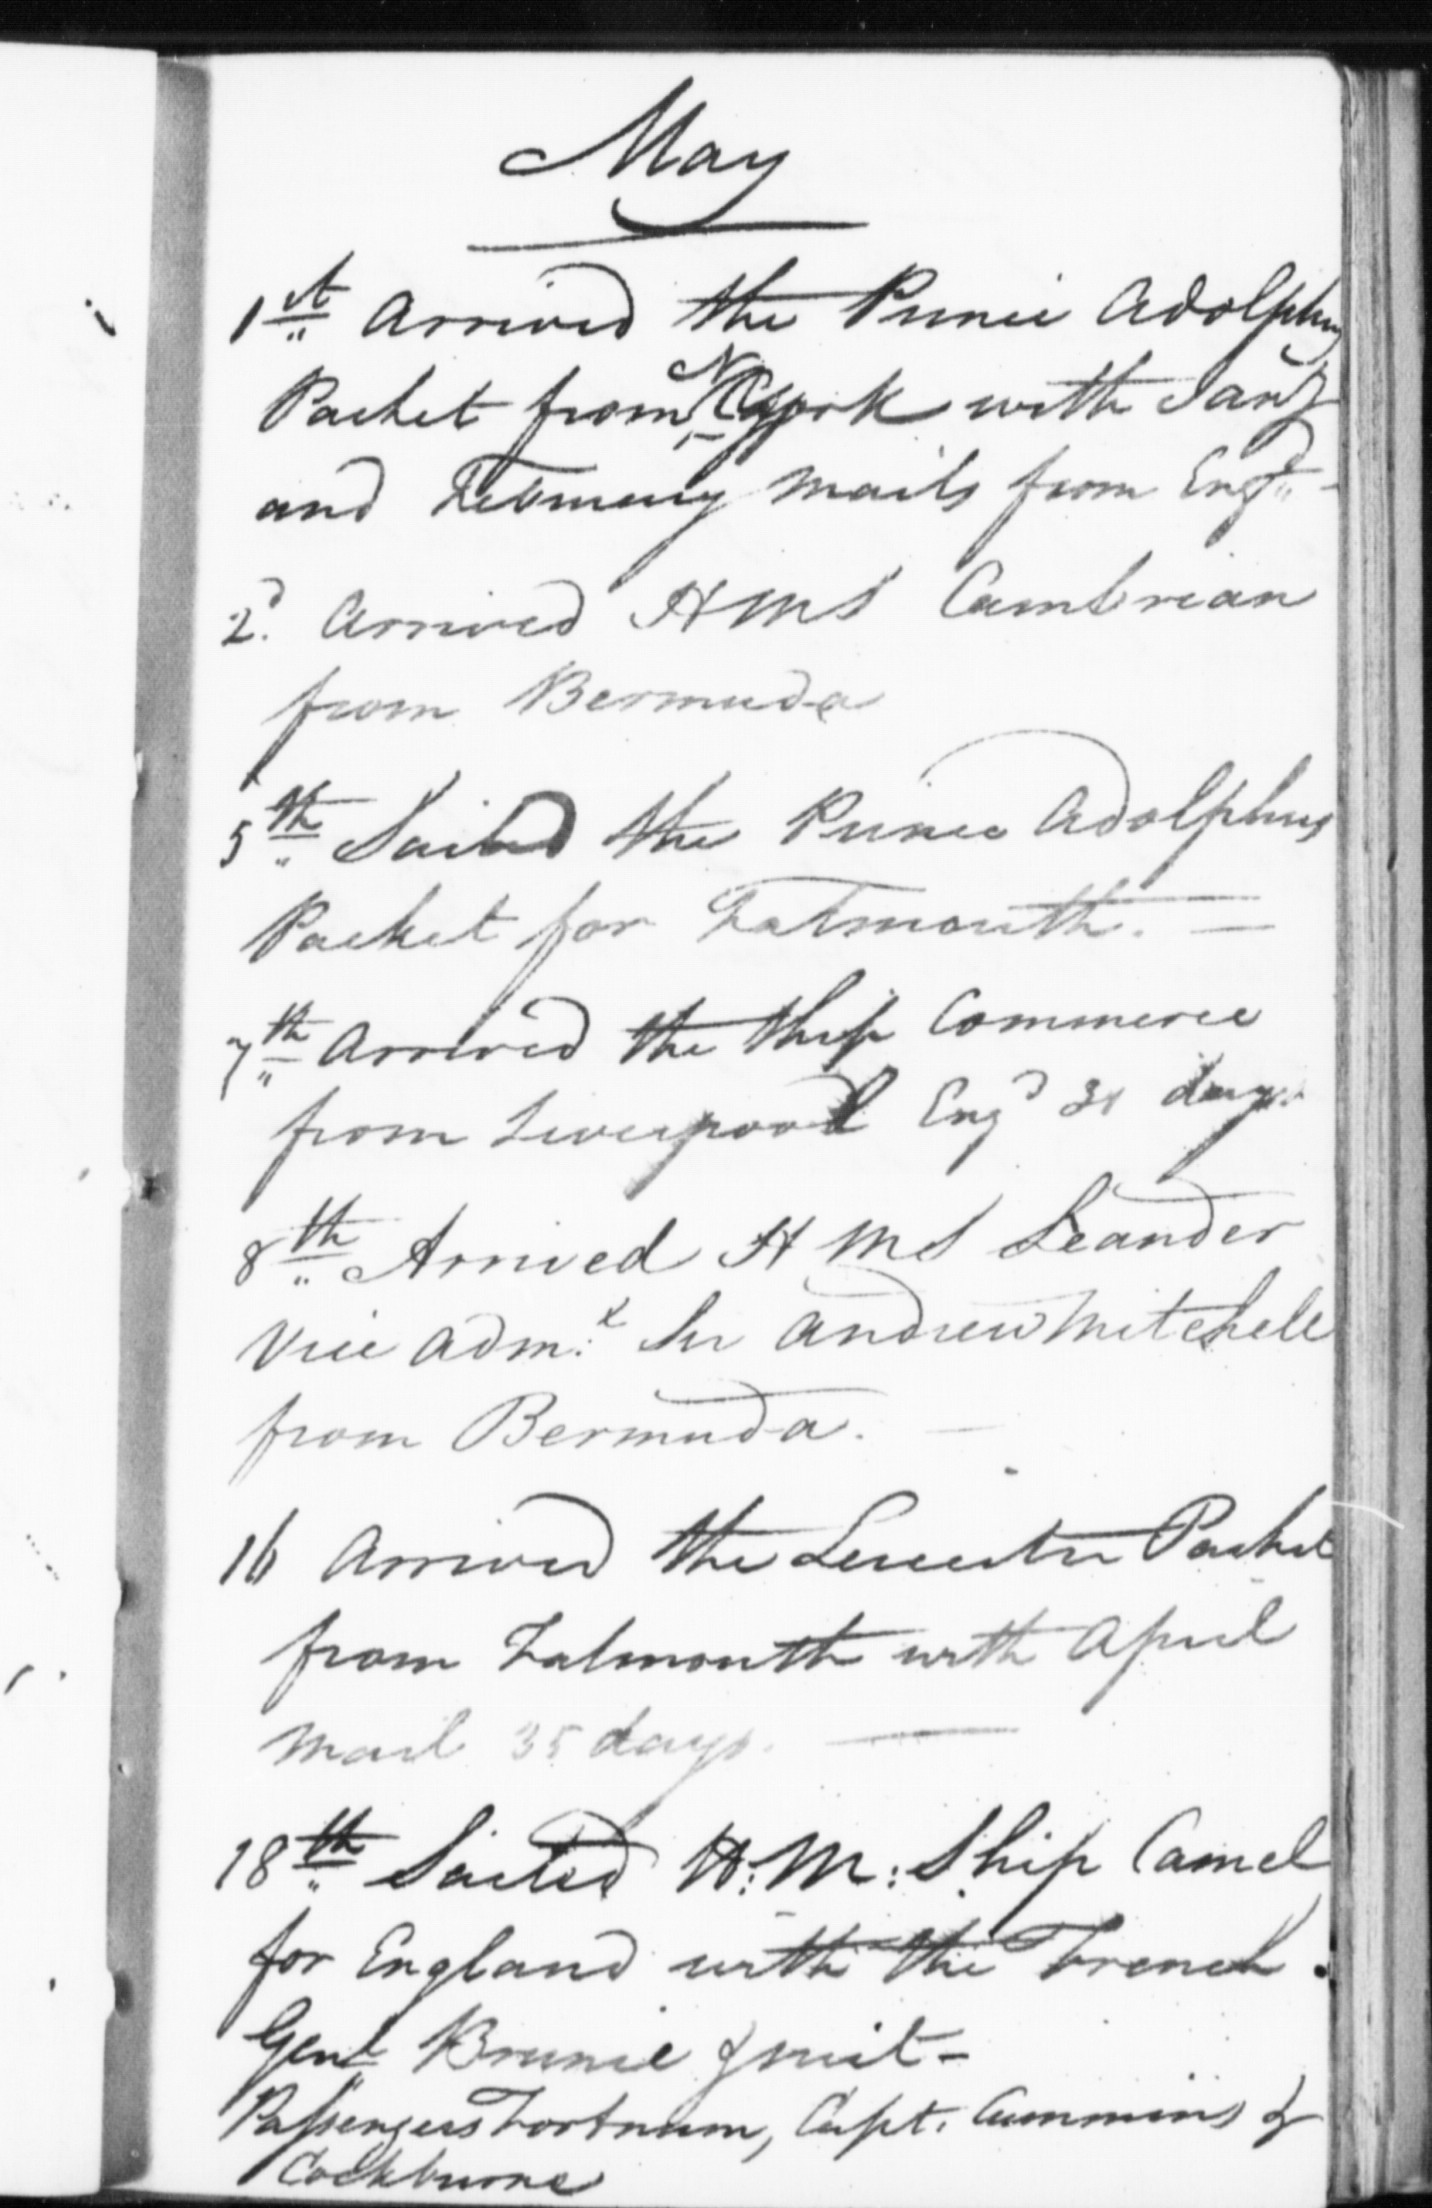 May
1st Arrived the Prince Adolphus
Packet from N york with Jany
and February Mails from Engd
2d. Arrived H M S Cambrian
from Bermuda
5th Sailed the Prince Adolphus
Packet for Falmouth. —
7th Arrived the Ship Commerce
from Liverpool Engd 31 days
8th Arrived H M S Leander
Vice Adm.l Sir Andrew Mitchell
from Bermuda. —
16 Arrived the Leicester Packet
from Falmouth with April
Mail 35 days. —
18th Sailed H: M: Ship Camel
for England with the French
Genl Brunie & suit -
Passengers Fortnum, Capt. Cummins &
Cockburne